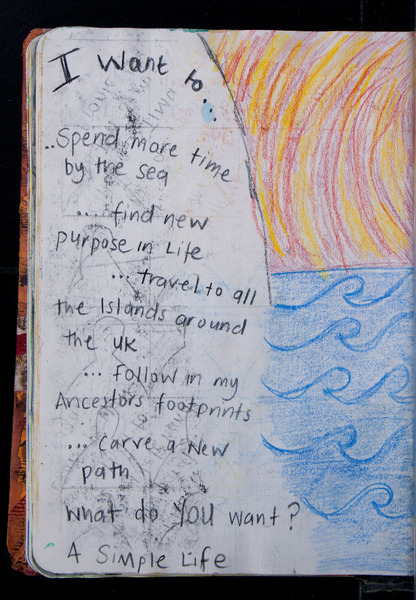 I Want to...
..Spend more time
by the sea
.... find new
purpose in Life
... travel to all
the Islands around
the UK
... follow in my
Ancestors footprints
... carve a New
path
What do you want?
A Simple Life